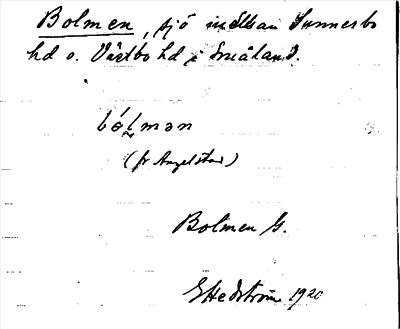 Bolmen, sjö mellan Sunnerbo
hd o. Västbo hd i Småland.
bólmən
(fr Angelstad)
Bolmen G.
E Hedström 1920